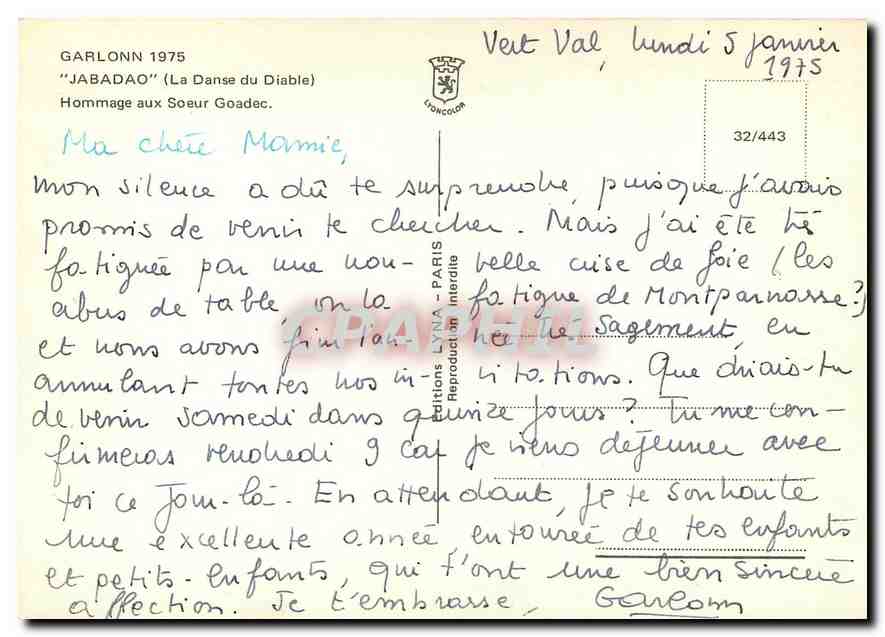 GARLONN 1975
"JABADAO" (La Danse du Diable)
Hommage aux Soeur Goadec.
LYONCOLOR
Vert Val, lundi 5 janvier
1975
32/443
Ma chère Mamie,
mon silence a dû te surprendre, puisque j'avais
promis de venir te chercher. Mais j'ai été très
fatiguée par une nouvelle crise de foie (les
abus de table, ou la fatigue de Montparnasse?)
et nous avons fini l'année très sagement, en
annulant toutes nos invitations. Que dirais-tu
de venir samedi dans quinze jours? Tu me con-
firmeras vendredi 9 car je viens déjeuner avec
toi ce jour-là. En attendant, je te souhaite
une excellente année, entourée de tes enfants
et petits-enfants, qui t'ont une bien sincère
affection. Je t'embrasse, Garlonn
Editions LYNA - PARIS
Reproduction interdite
CPAPHIL